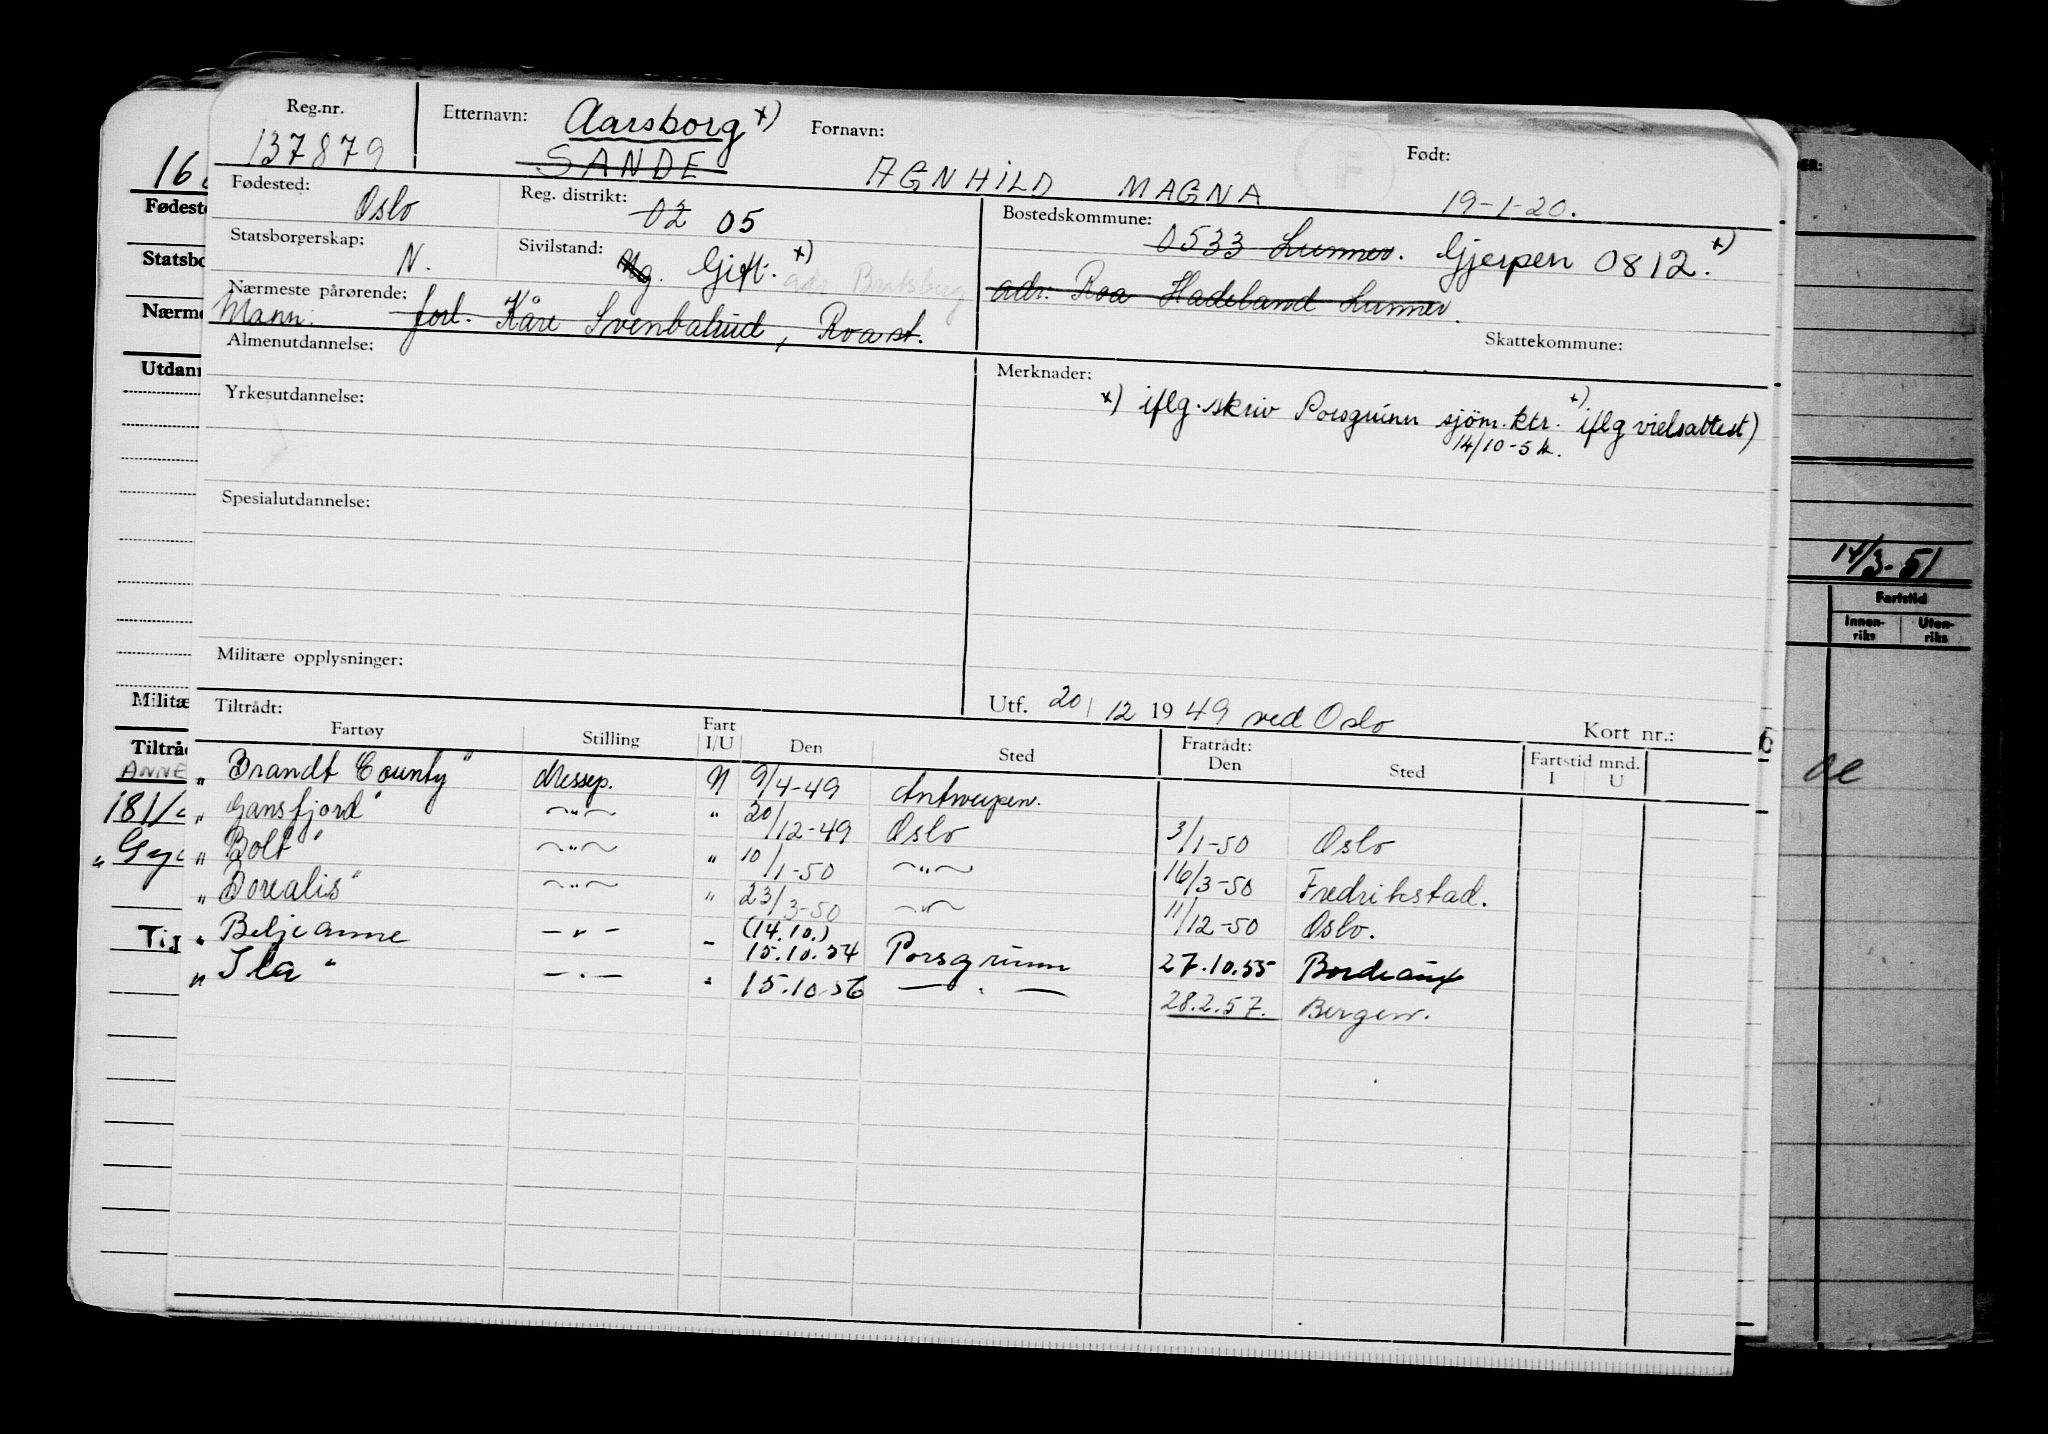 Reg.nr.
137879
Etternavn: Aarsborg x)
SANDE
Fornavn:
AGNHILD MAGNA
F
Født:
19-1-20.
Fødested:
Oslo
Reg. distrikt:
02 05
Bostedskommune:
0533 Lunner. Gjerpen 0812. x)
adr: Roa Hadeland Lunner.
Statsborgerskap:
N.
Sivilstand:
Ug. Gift. x)
adr. Bratsberg
Nærmeste pårørende:
Mann: forl. Kåre Svenbalrud, Roa st.
Skattekommune:
Almenutdannelse:
Merknader:
x) iflg. skriv Porsgrunn sjöm. ktr. x) iflg vielsattest)
14/10-54.
Yrkesutdannelse:
Spesialutdannelse:
Militære opplysninger:
Utf. 20/12 1949 ved Oslo
Kort nr.:
Tiltrådt:
Fratrådt:
Fartøy Stilling Fart I/U Den Sted Den Sted Fartstid mnd. I U
"Brandt County" Messep. N 9/4-49 Antwerpen.
"Gansfjord" -"- " 20/12-49 Oslo 3/1-50 Oslo
"Bolt" -"- " 10/1-50 -"- 16/3-50 Fredrikstad.
"Borealis" -"- " 23/3-50 -"- 11/12-50 Oslo.
" Beljeanne -"- - (14.10.) 15.10.54 Porsgrunn 27.10.55 Bordeaux
"Ila" -"- " 15.10.56 -"- 28.2.57. Bergen.
16
Fødest
Statsbo
Nærme
Utdann
Militæ
Tiltrå
ANNE
181/
"Gy
Tis
ER:
14/3-51
Fartstid
Innen-
riks
Uten-
riks